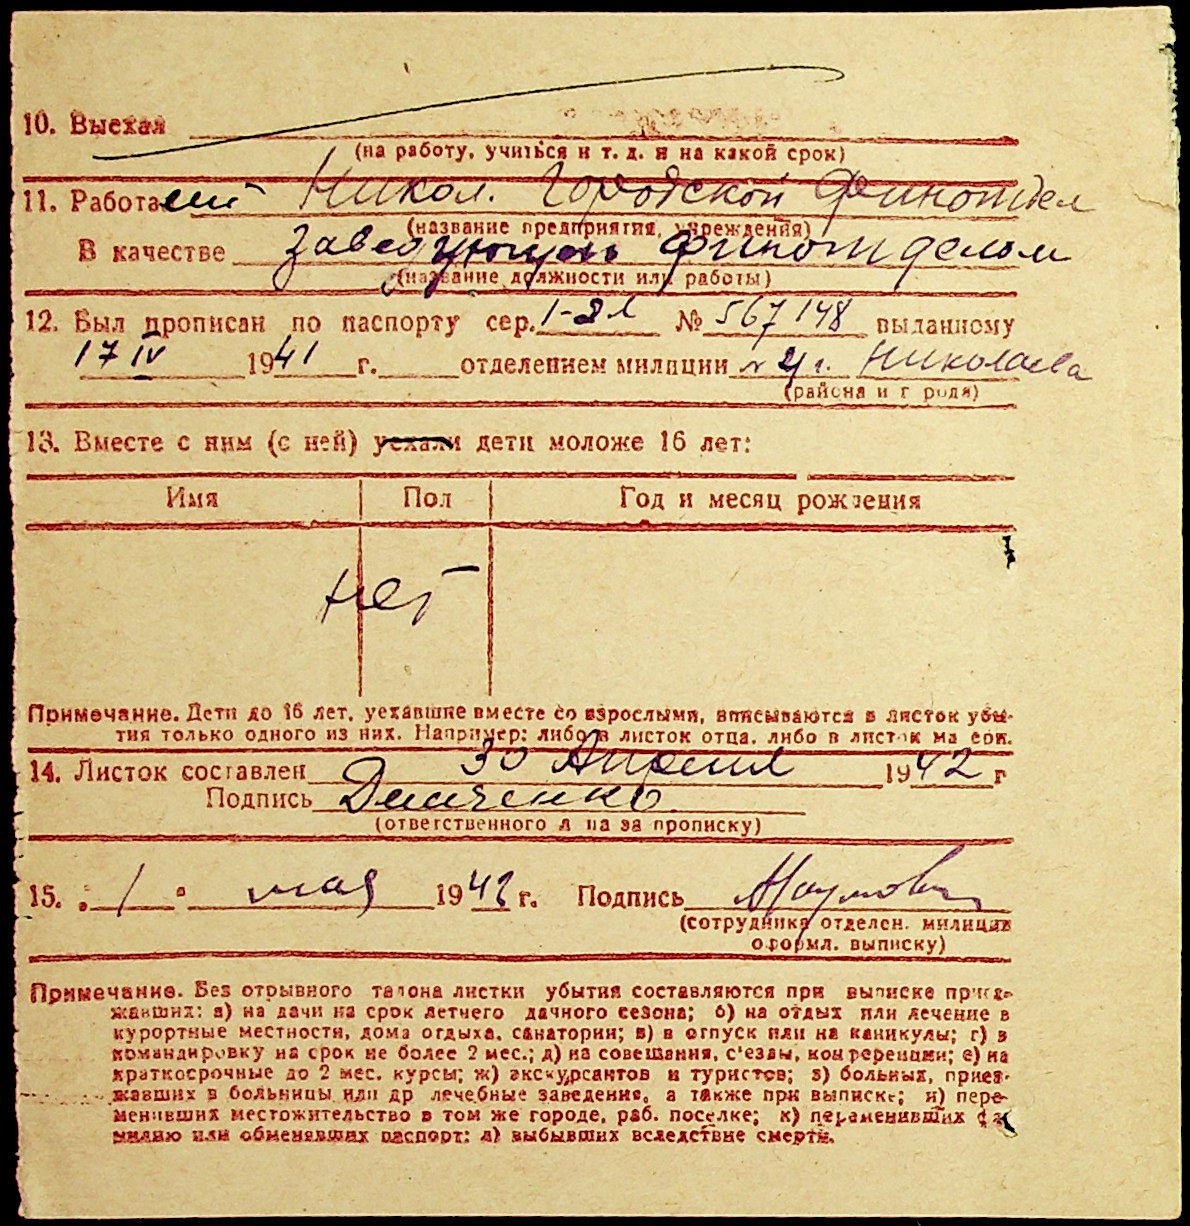 10. Выехал
(на работу, учиться и т. д. и на какой срок)
11. Работает Никол. Городской Финотдел
(название предприятия, учреждения)
В качестве Заведующей финотделом
(название должности или работы)
12. Был прописан по паспорту сер. № 567148 выданному
17 IV 1941 г. отделением милиции г. Николаева
(района и города)
13. Вместе с ним (с ней) уехали дети моложе 16 лет:
Имя Пол Год и месяц рождения
нет
Примечание. Дети до 16 лет, уехавшие вместе со взрослыми, вписываются в листок убы-
тия только одного из них. Например: либо в листок отца, либо в листок матери.
14. Листок составлен 30 Апреля 1942 г
Подпись
(ответственного лица за прописку)
15. 1 мая 1942 г. Подпись
(сотрудника отделен. милиции
оформл. выписку)
Примечание. Без отрывного талона листки убытия составляются при выписке приез-
жавших: а) на дачи на срок летнего дачного сезона; б) на отдых или лечение в
курортные местности, дома отдыха, санатории; в) в отпуск или на каникулы; г) в
командировку на срок не более 2 мес.; д) на совещания, с'езды, конференции; е) на
краткосрочные до 2 мес. курсы; ж) экскурсантов и туристов; з) больных, приез-
жавших в больницы или др лечебные заведения, а также при выписке; и) пере-
менивших местожительство в том же городе, раб. поселке; к) переменивших фа
милию или обменявших паспорт; л) выбывших вследствие смерти.